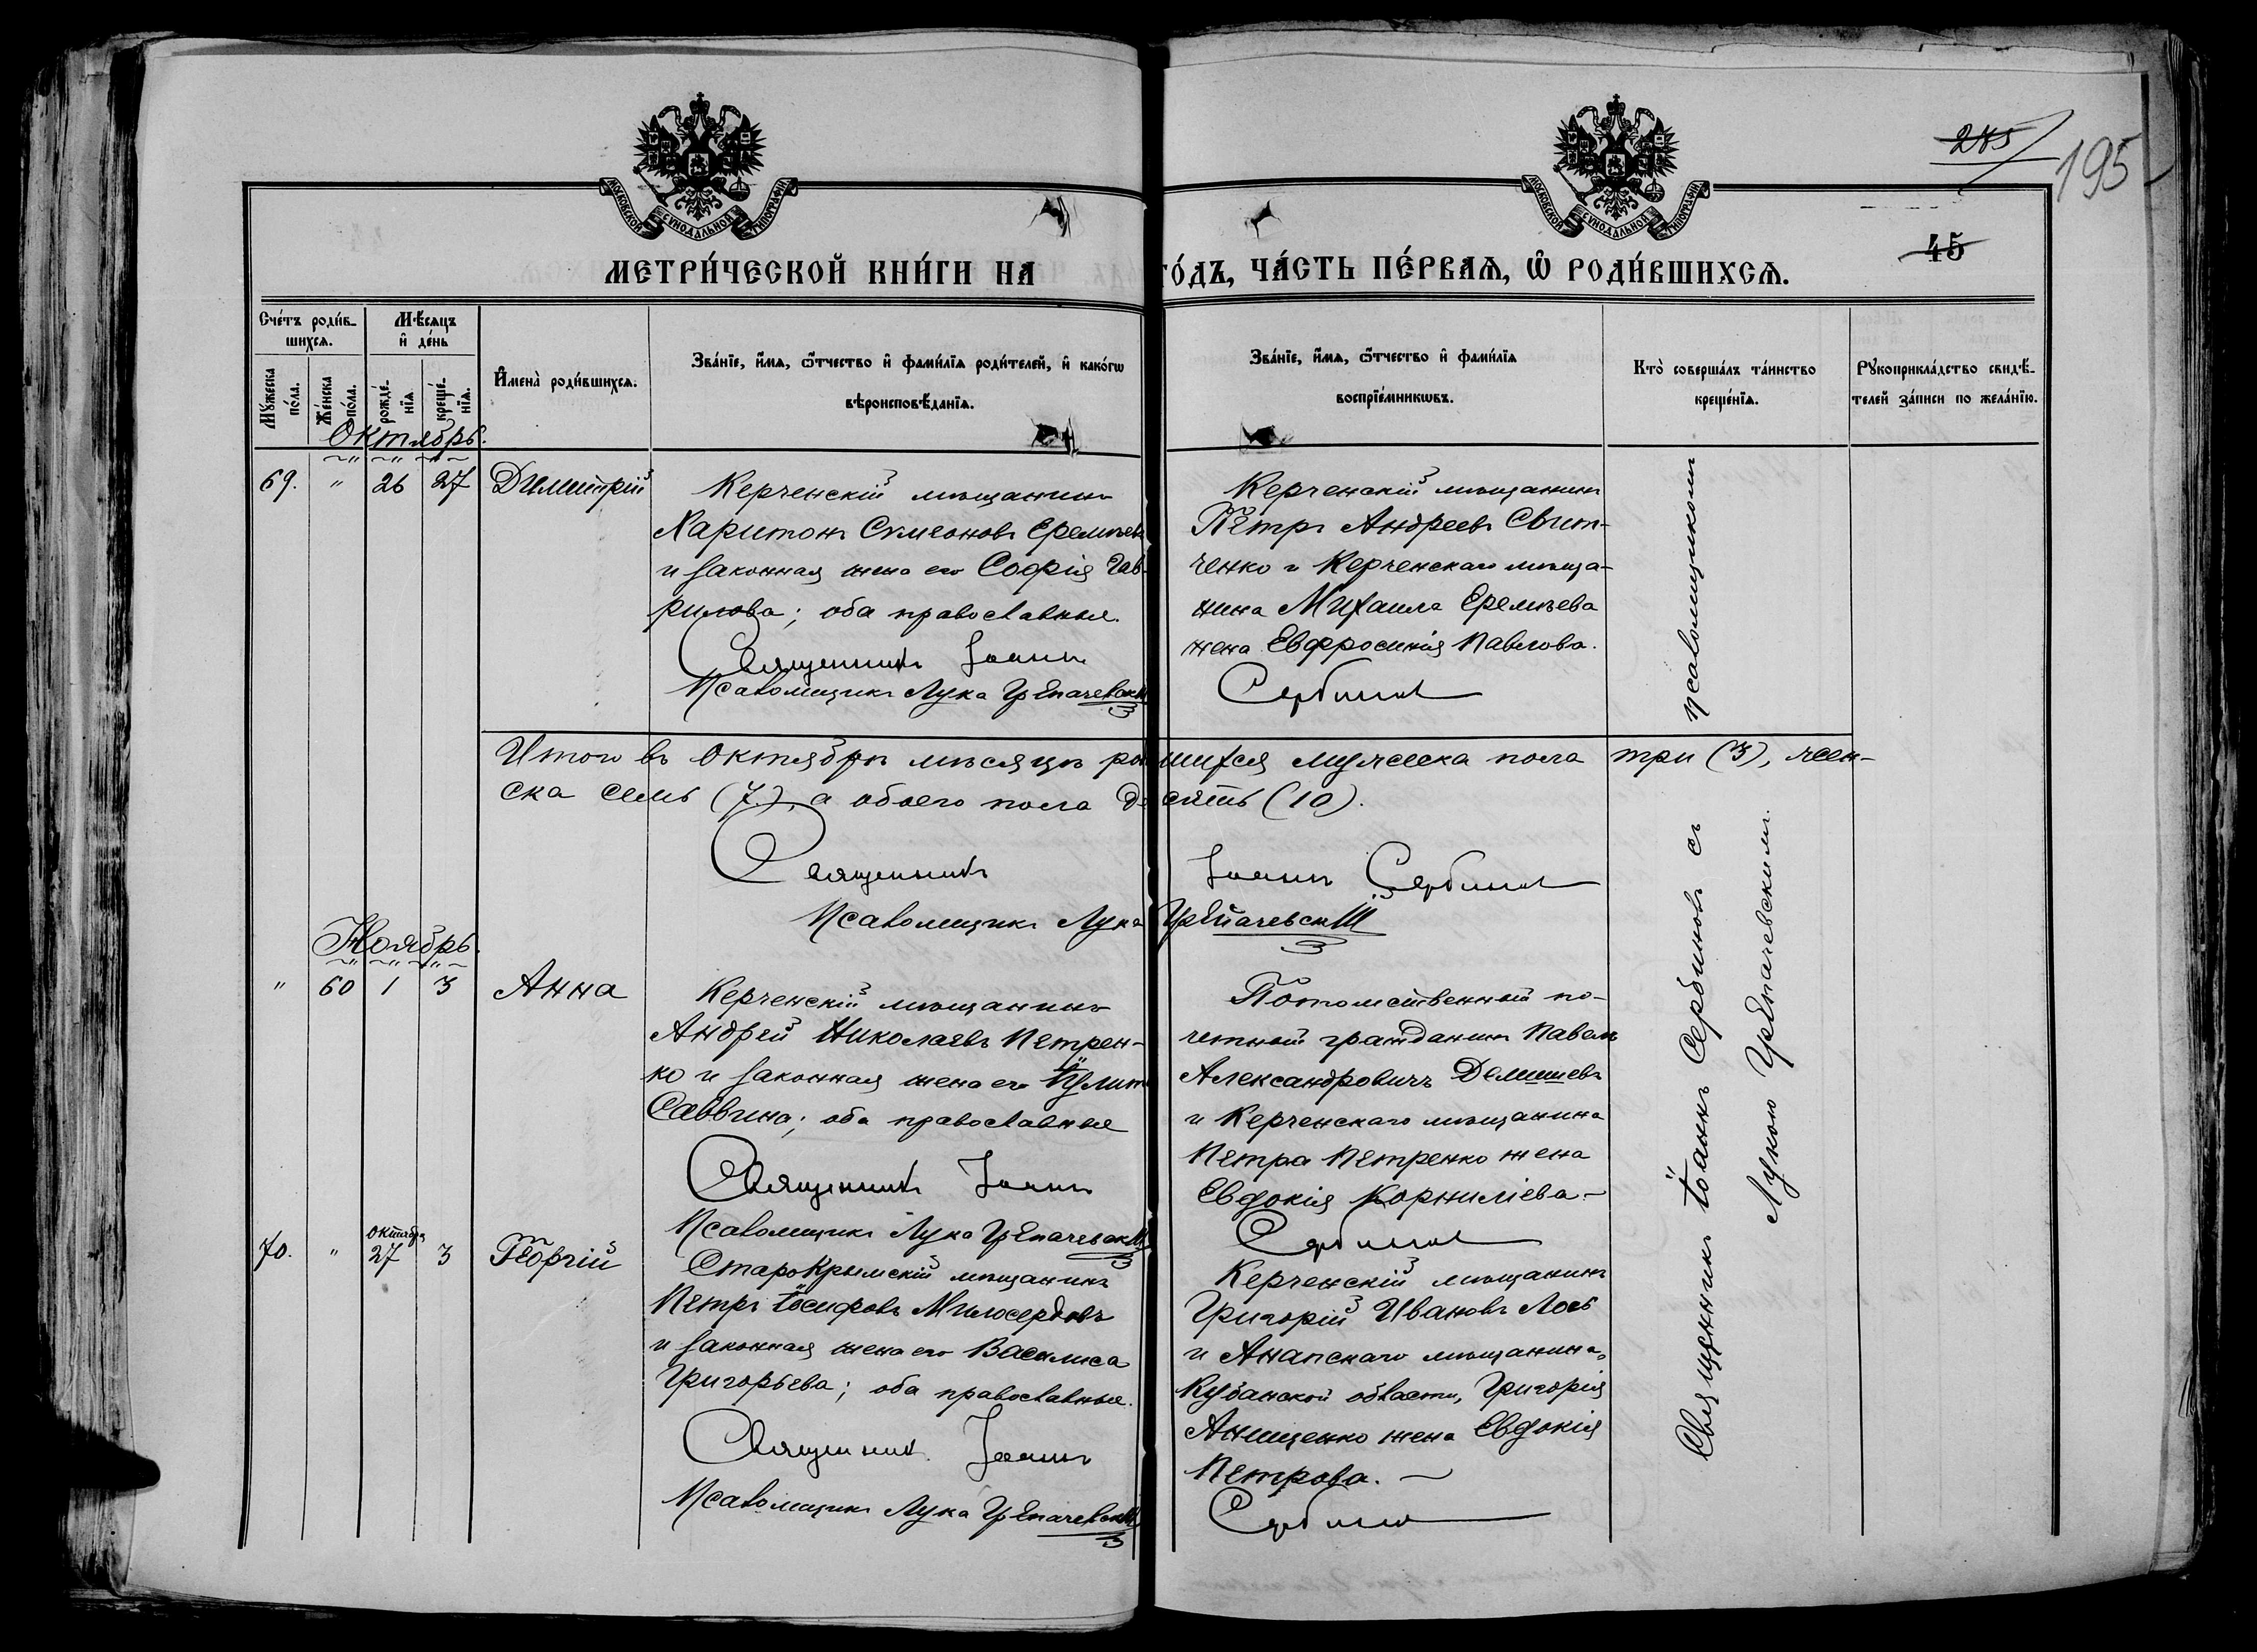 285
195
45
МОСКОВСКОЙ СѴНОДАЛЬНОЙ ТИПОГРАФІИ
МОСКОВСКОЙ СѴНОДАЛЬНОЙ ТИПОГРАФІИ
МЕТРИ́ЧЕСКОЙ КНИ́ГИ НА
ГО́ДЪ, ЧА́СТЬ ПЕ́РВАѦ, Ѡ҆ РОДИ́ВШИХСѦ.
Сче́тъ роди́в-
шихсѧ.
Мѣ́сѧцъ
и҆ де́нь
Мꙋ́жеска
по́ла.
Же́нска
по́ла.
рожде́-
нїѧ.
креще́-
нїѧ.
И҆мена̀ роди́вшихсѧ.
Зва́нїе, и҆́мѧ, ѻ҆́тчество и҆ фами́лїѧ роди́телей, и҆ како́гѡ
вѣроисповѣ́данїѧ.
Зва́нїе, и҆́мѧ, ѻ҆́тчество и҆ фами́лїѧ
воспрїе́мникѡвъ.
Кто̀ соверша́лъ та́инство
креще́нїѧ.
Рꙋкоприкла́дство свидѣ́-
телей за́писи по жела́нїю.
Октябрь.
69. " 26 27 Димитрій
Керченскій мѣщанинъ
Харитонъ Сѵмеоновъ Еремѣевъ
и законная жена его Софія Гав-
рилова; оба православные.
Священникъ Іоаннъ
Псаломщикъ Лука
Керченскій мѣщанинъ
Петръ Андреевъ Свит-
ченко и Керченскаго мѣща-
нина Михаила Еремѣева
жена Евфросинія Павлова.
Сербиновъ
Итого въ Октябрѣ мѣсяцѣ ро шихся мужеска пола три (3), жен-
ска семь (7), а обоего пола де сять (10).
Священникъ Іоаннъ Сербиновъ
Псаломщикъ Лука
Ноябрь.
" 60 1 3 Анна
Керченскій мѣщанинъ
Андрей Николаевъ Петрен-
ко и законная жена его
Саввина; оба православные
Священникъ Іоаннъ
Псаломщикъ Лука
Потомственный по-
четный гражданинъ Павелъ
Александровичъ Демишевъ
и Керченскаго мѣщанина
Петра Петренко жена
Евдокія Корниліева. –
Сербиновъ
70. " Октября 27 3 Георгій
Старокрымскій мѣщанинъ
Петръ Іосифовъ Милосердовъ
и законная жена его Василиса
Григорьева; оба православные.
Священникъ Іоаннъ
Псаломщикъ Лука
Керченскій мѣщанинъ
Григорій Ивановъ Лось
и Анапскаго мѣщанина,
Кубанской области, Григорія
Анищенко жена Евдокія
Петрова. –
Сербиновъ
Священникъ Іоаннъ Сербиновъ съ псаломщикомъ
Лукою